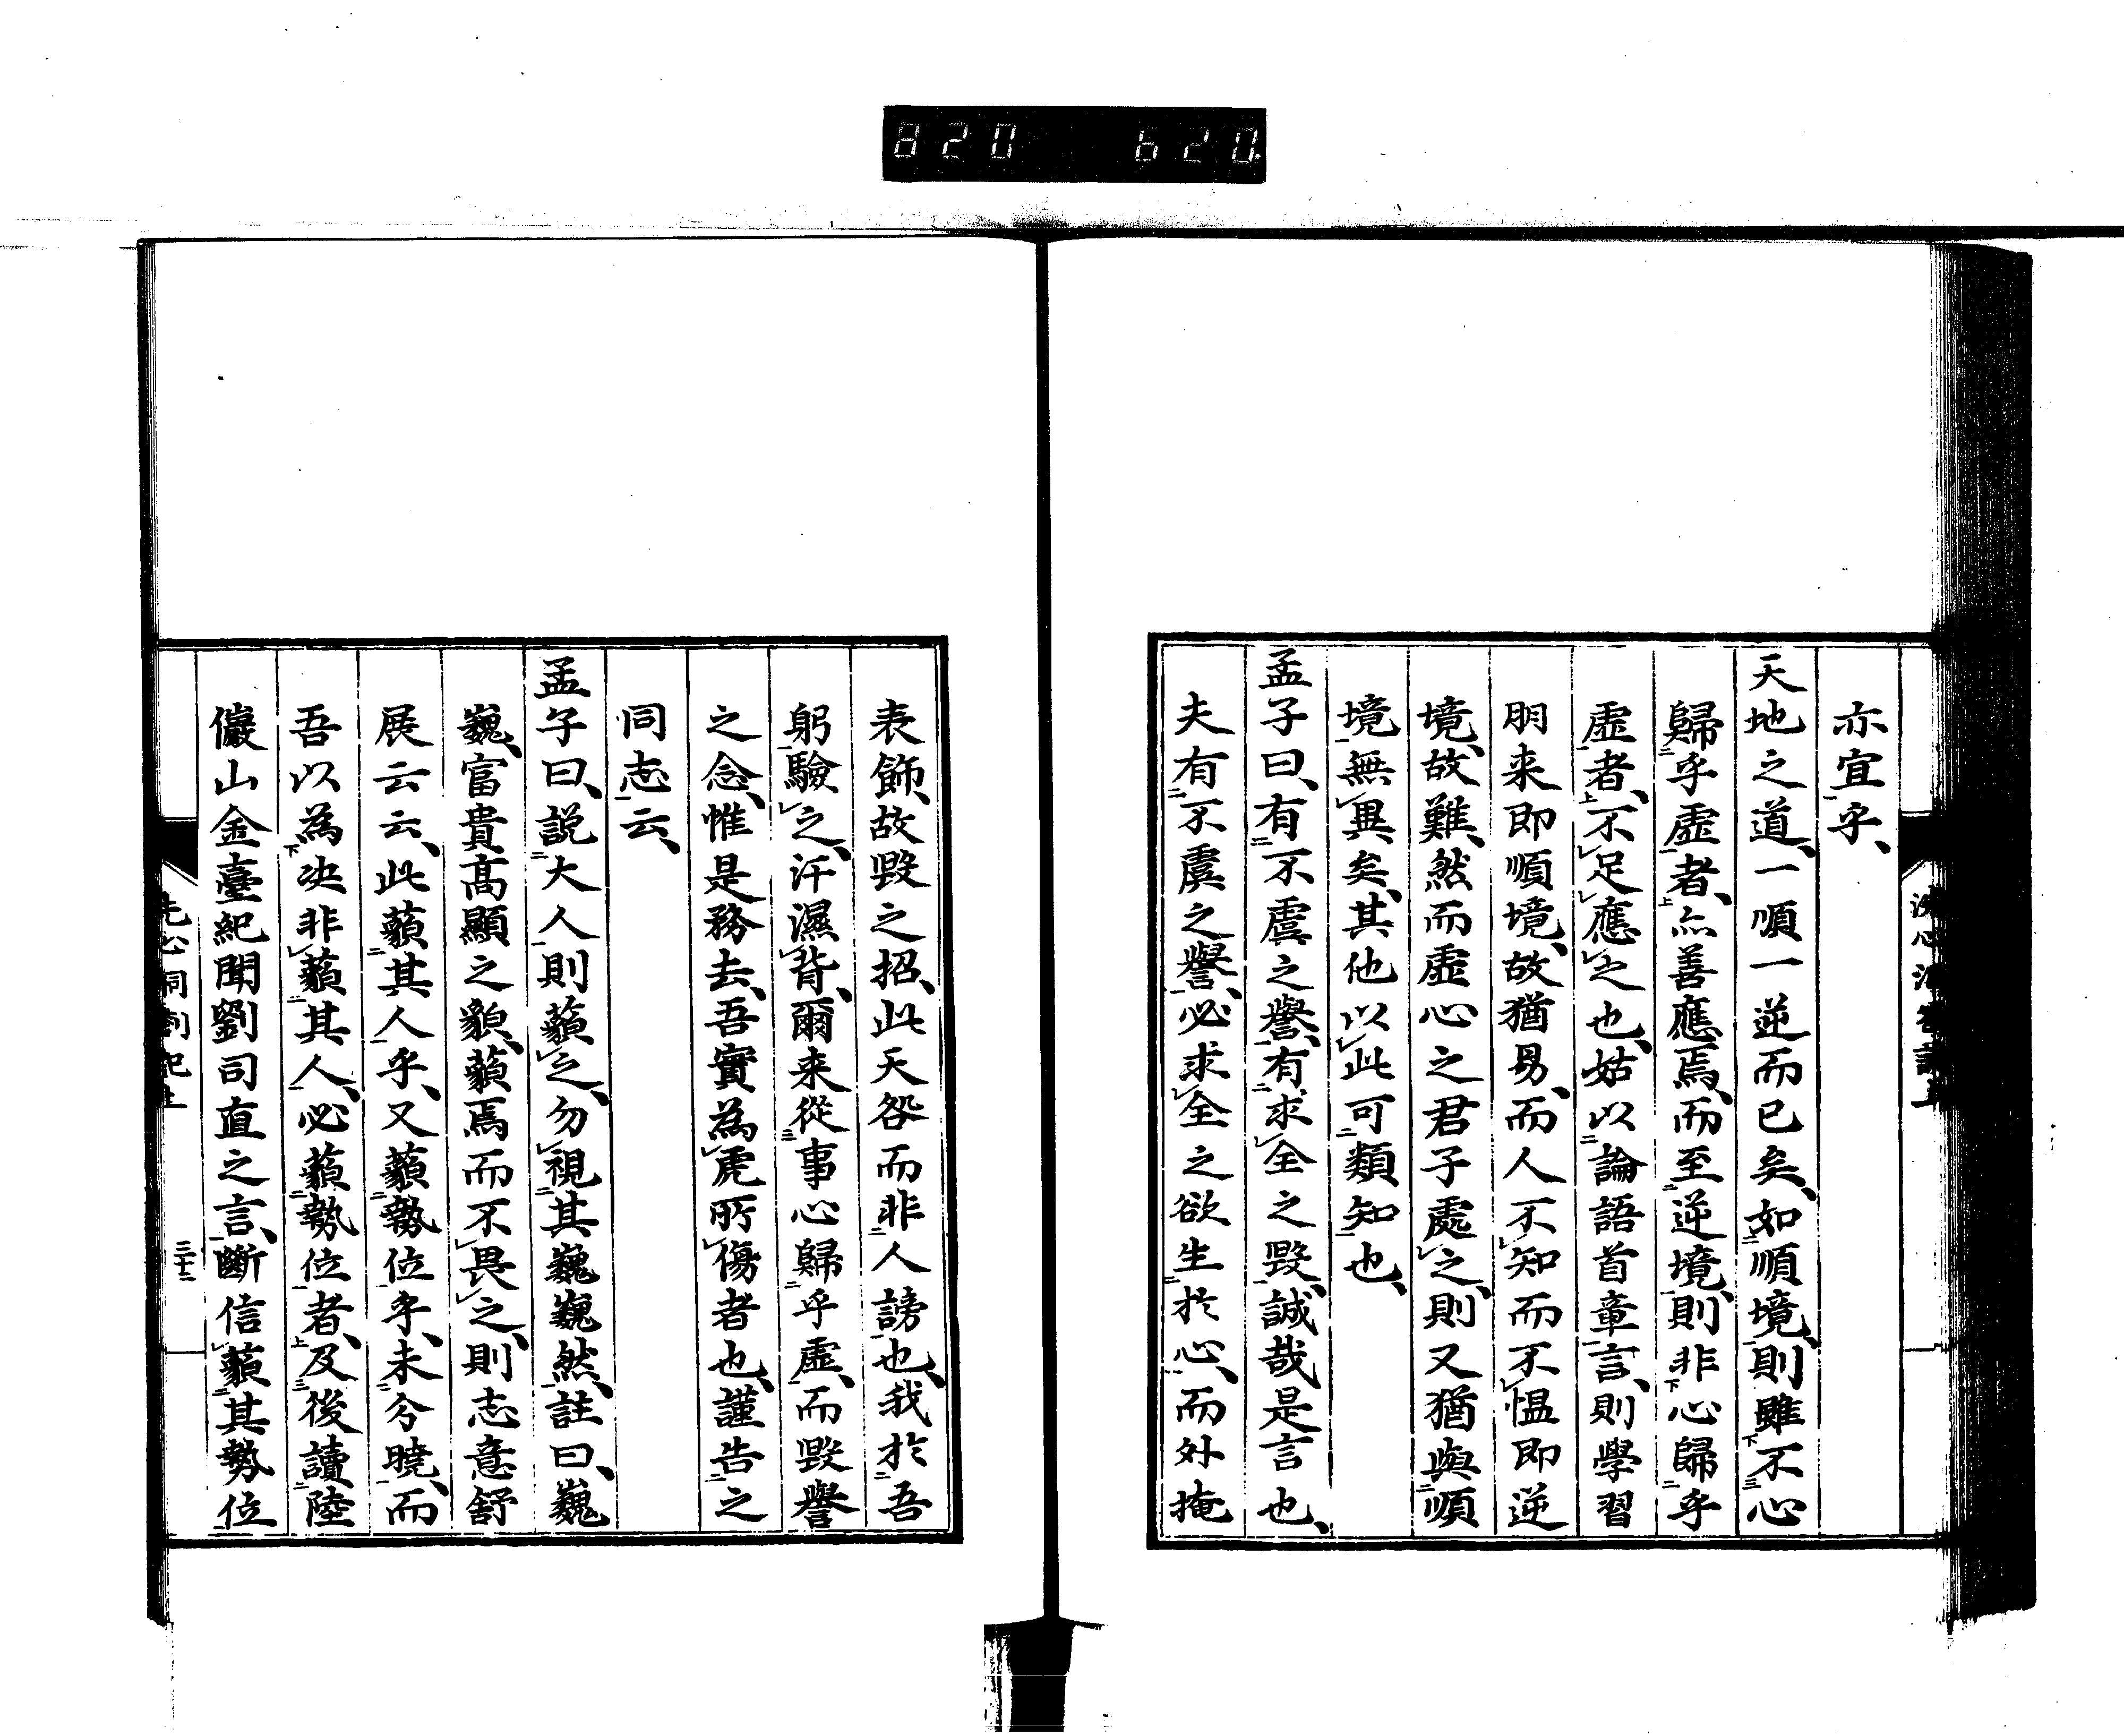 a20 b20.
亦宜乎、
天地之道、一順一逆而已矣、如順境、則雖不心
歸乎虚者、亦善應焉、而至逆境、則非心歸乎
虚者、不足應之也、姑以論語首章言、則學習
朋来即順境、故猶易、而人不知而不慍即逆
境、故難、然而虚心之君子處之、則又猶與順
境無異矣、其他以此可類知也、
孟子曰、有不虞之譽、有求全之毀、誠哉是言也、
夫有不虞之譽、必求全之欲生於心、而外掩
表飾、故毀之招、此天咎而非人謗也、我於吾
躬驗之、汗濕背、爾来從事心歸乎虚、而毀譽
之念、惟是務去、吾實為虎所傷者也、謹告之
同志云、
孟子曰、説大人則藐之、勿視其巍巍然、註曰、巍
巍、富貴髙顯之貌、藐焉而不畏之、則志意舒
展云云、此藐其人乎、又藐勢位乎、未分曉、而
吾以為決非藐其人、必藐勢位者、及後讀陸
儼山金臺紀聞劉司直之言、斷信藐其勢位
洗心洞劄記上
三十二